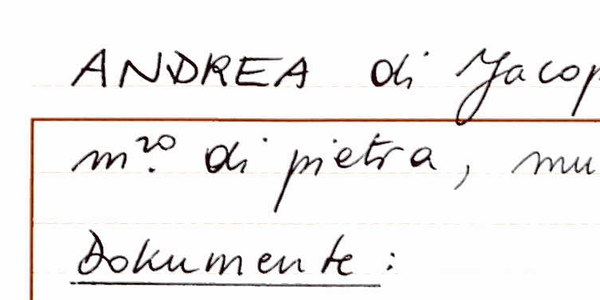 ANDREA di Jacop
m.ro di pietra, mu
Dokumente: